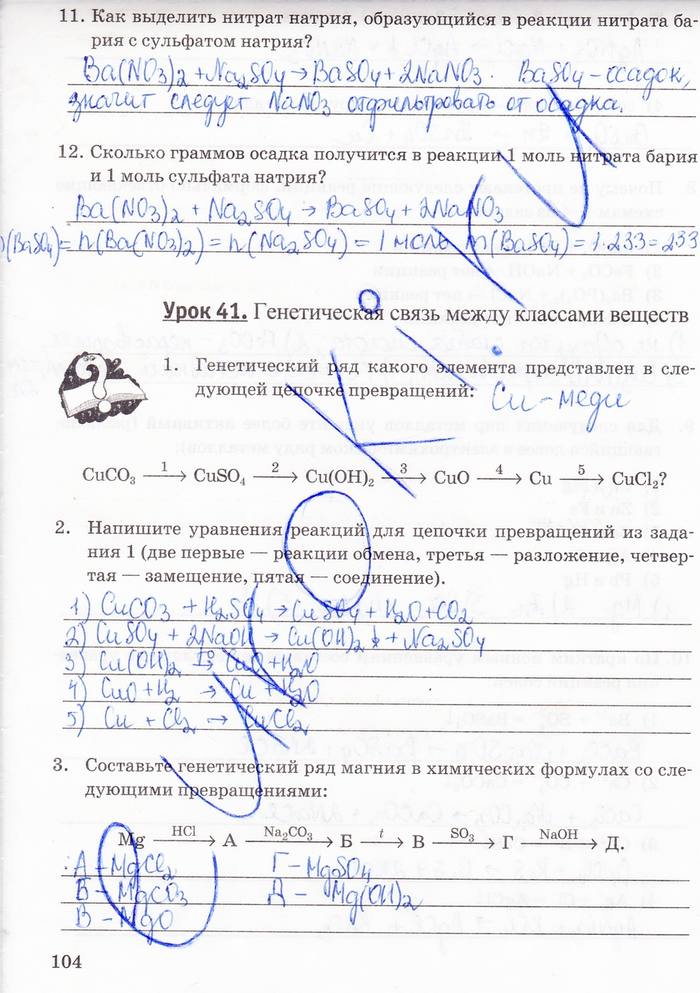 11. Как выделить нитрат натрия, образующийся в реакции нитрата ба-
рия с сульфатом натрия?
Ba(NO3)2 + Na2SO4 → BaSO4 + 2NaNO3. BaSO4 – осадок,
значит следует NaNO3 отфильтровать от осадка.
12. Сколько граммов осадка получится в реакции 1 моль нитрата бария
и 1 моль сульфата натрия?
Ba(NO3)2 + Na2SO4 → BaSO4 + 2NaNO3
(BaSO4) = n(Ba(NO3)2) = n(Na2SO4) = 1 моль m(BaSO4) = 1·233 = 233
Урок 41. Генетическая связь между классами веществ
1. Генетический ряд какого элемента представлен в сле-
дующей цепочке превращений: Cu – меди
CuCO3 —1→ CuSO4 —2→ Cu(OH)2 —3→ CuO —4→ Cu —5→ CuCl2?
2. Напишите уравнения реакций для цепочки превращений из зада-
ния 1 (две первые — реакции обмена, третья — разложение, четвер-
тая — замещение, пятая — соединение).
1) CuCO3 + H2SO4 → CuSO4 + H2O + CO2
2) CuSO4 + 2NaOH → Cu(OH)2↓ + Na2SO4
3) Cu(OH)2 t° CuO + H2O
4) CuO + H2 → Cu + H2O
5) Cu + Cl2 → CuCl2
3. Составьте генетический ряд магния в химических формулах со сле-
дующими превращениями:
Mg —HCl→ А —Na2CO3→ Б —t→ В —SO3→ Г —NaOH→ Д.
А – MgCl2 Г – MgSO4
Б – MgCO3 Д – Mg(OH)2
В – MgO
104